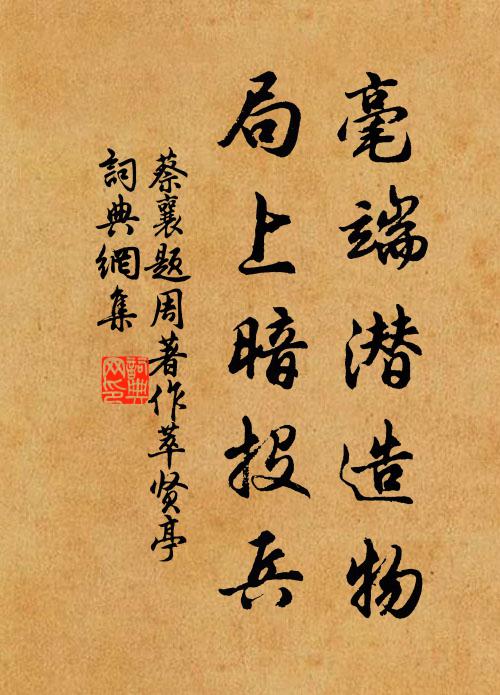 毫端潜造物
局上暗投兵
蔡襄题周著作萃贤亭
詞典網集
詞典网印